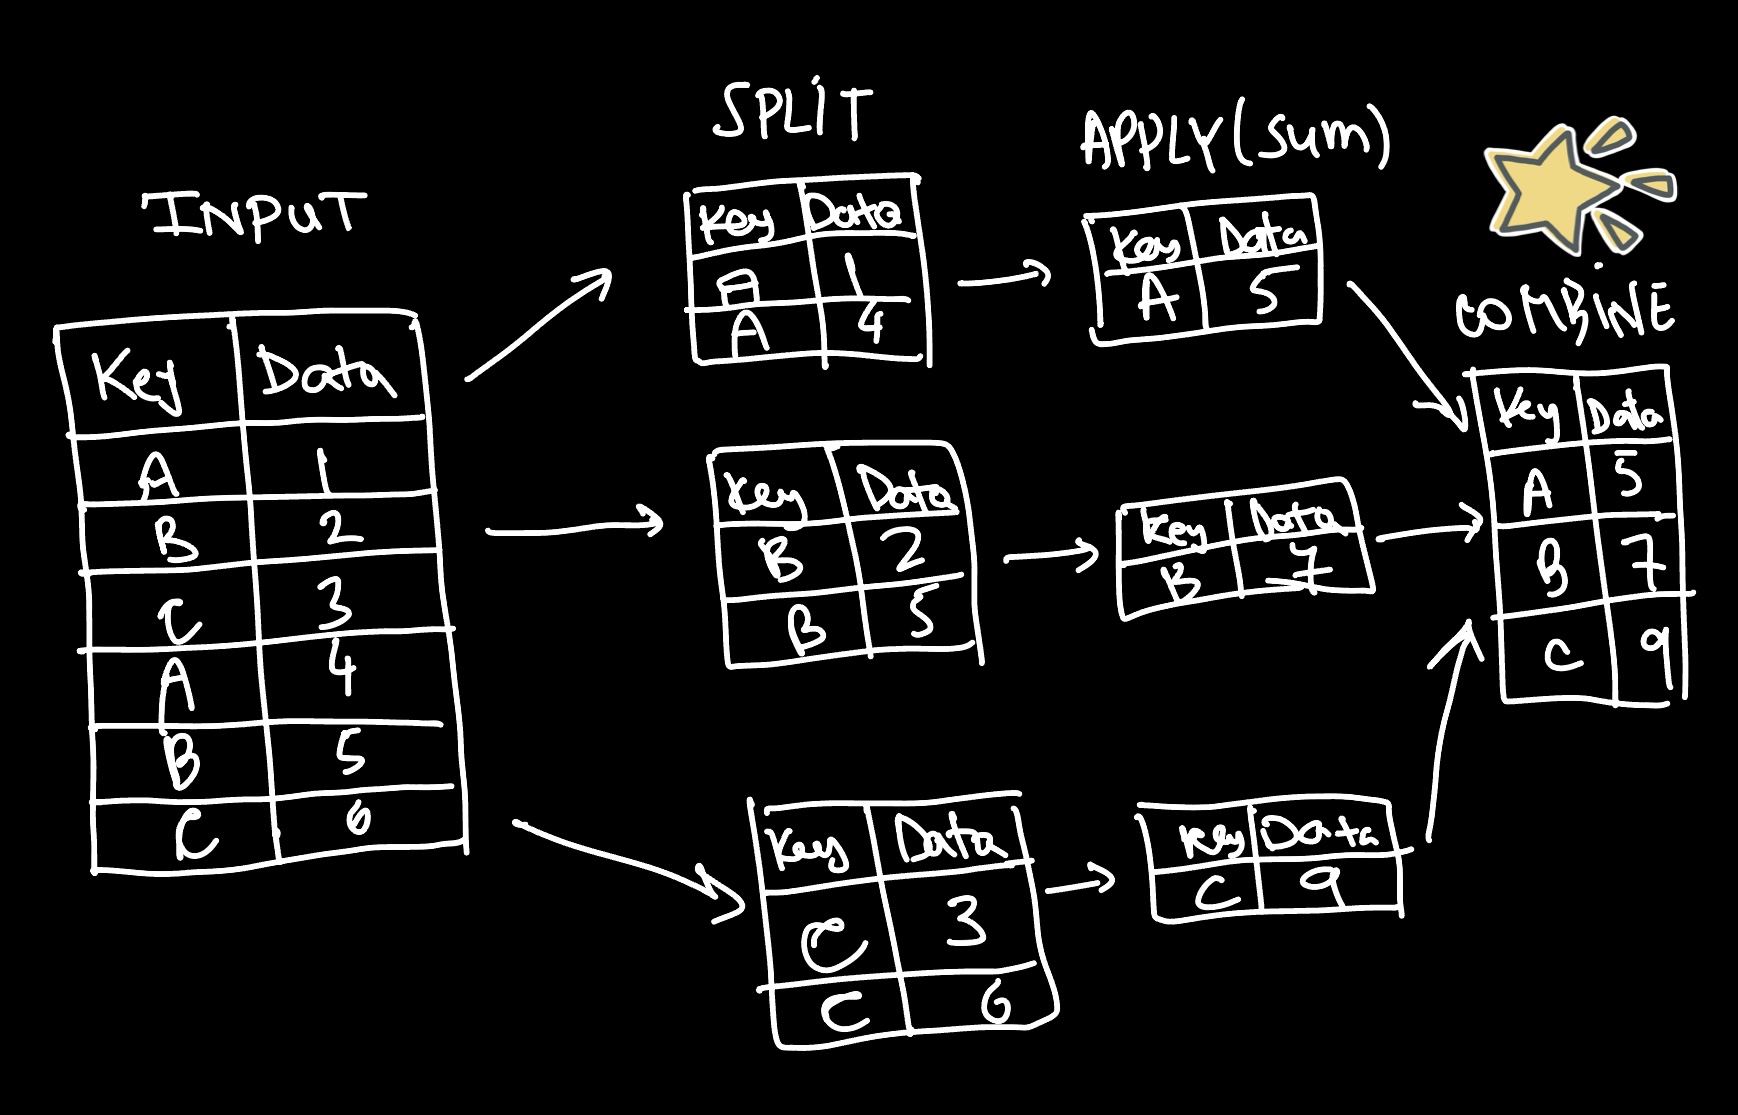 INPUT
Key Data
A 1
B 2
C 3
A 4
B 5
C 6
SPLIT
Key Data
A 1
A 4
Key Data
B 2
B 5
Key Data
C 3
C 6
APPLY(sum)
Key Data
A 5
Key Data
B 7
Key Data
C 9
COMBINE
Key Data
A 5
B 7
C 9